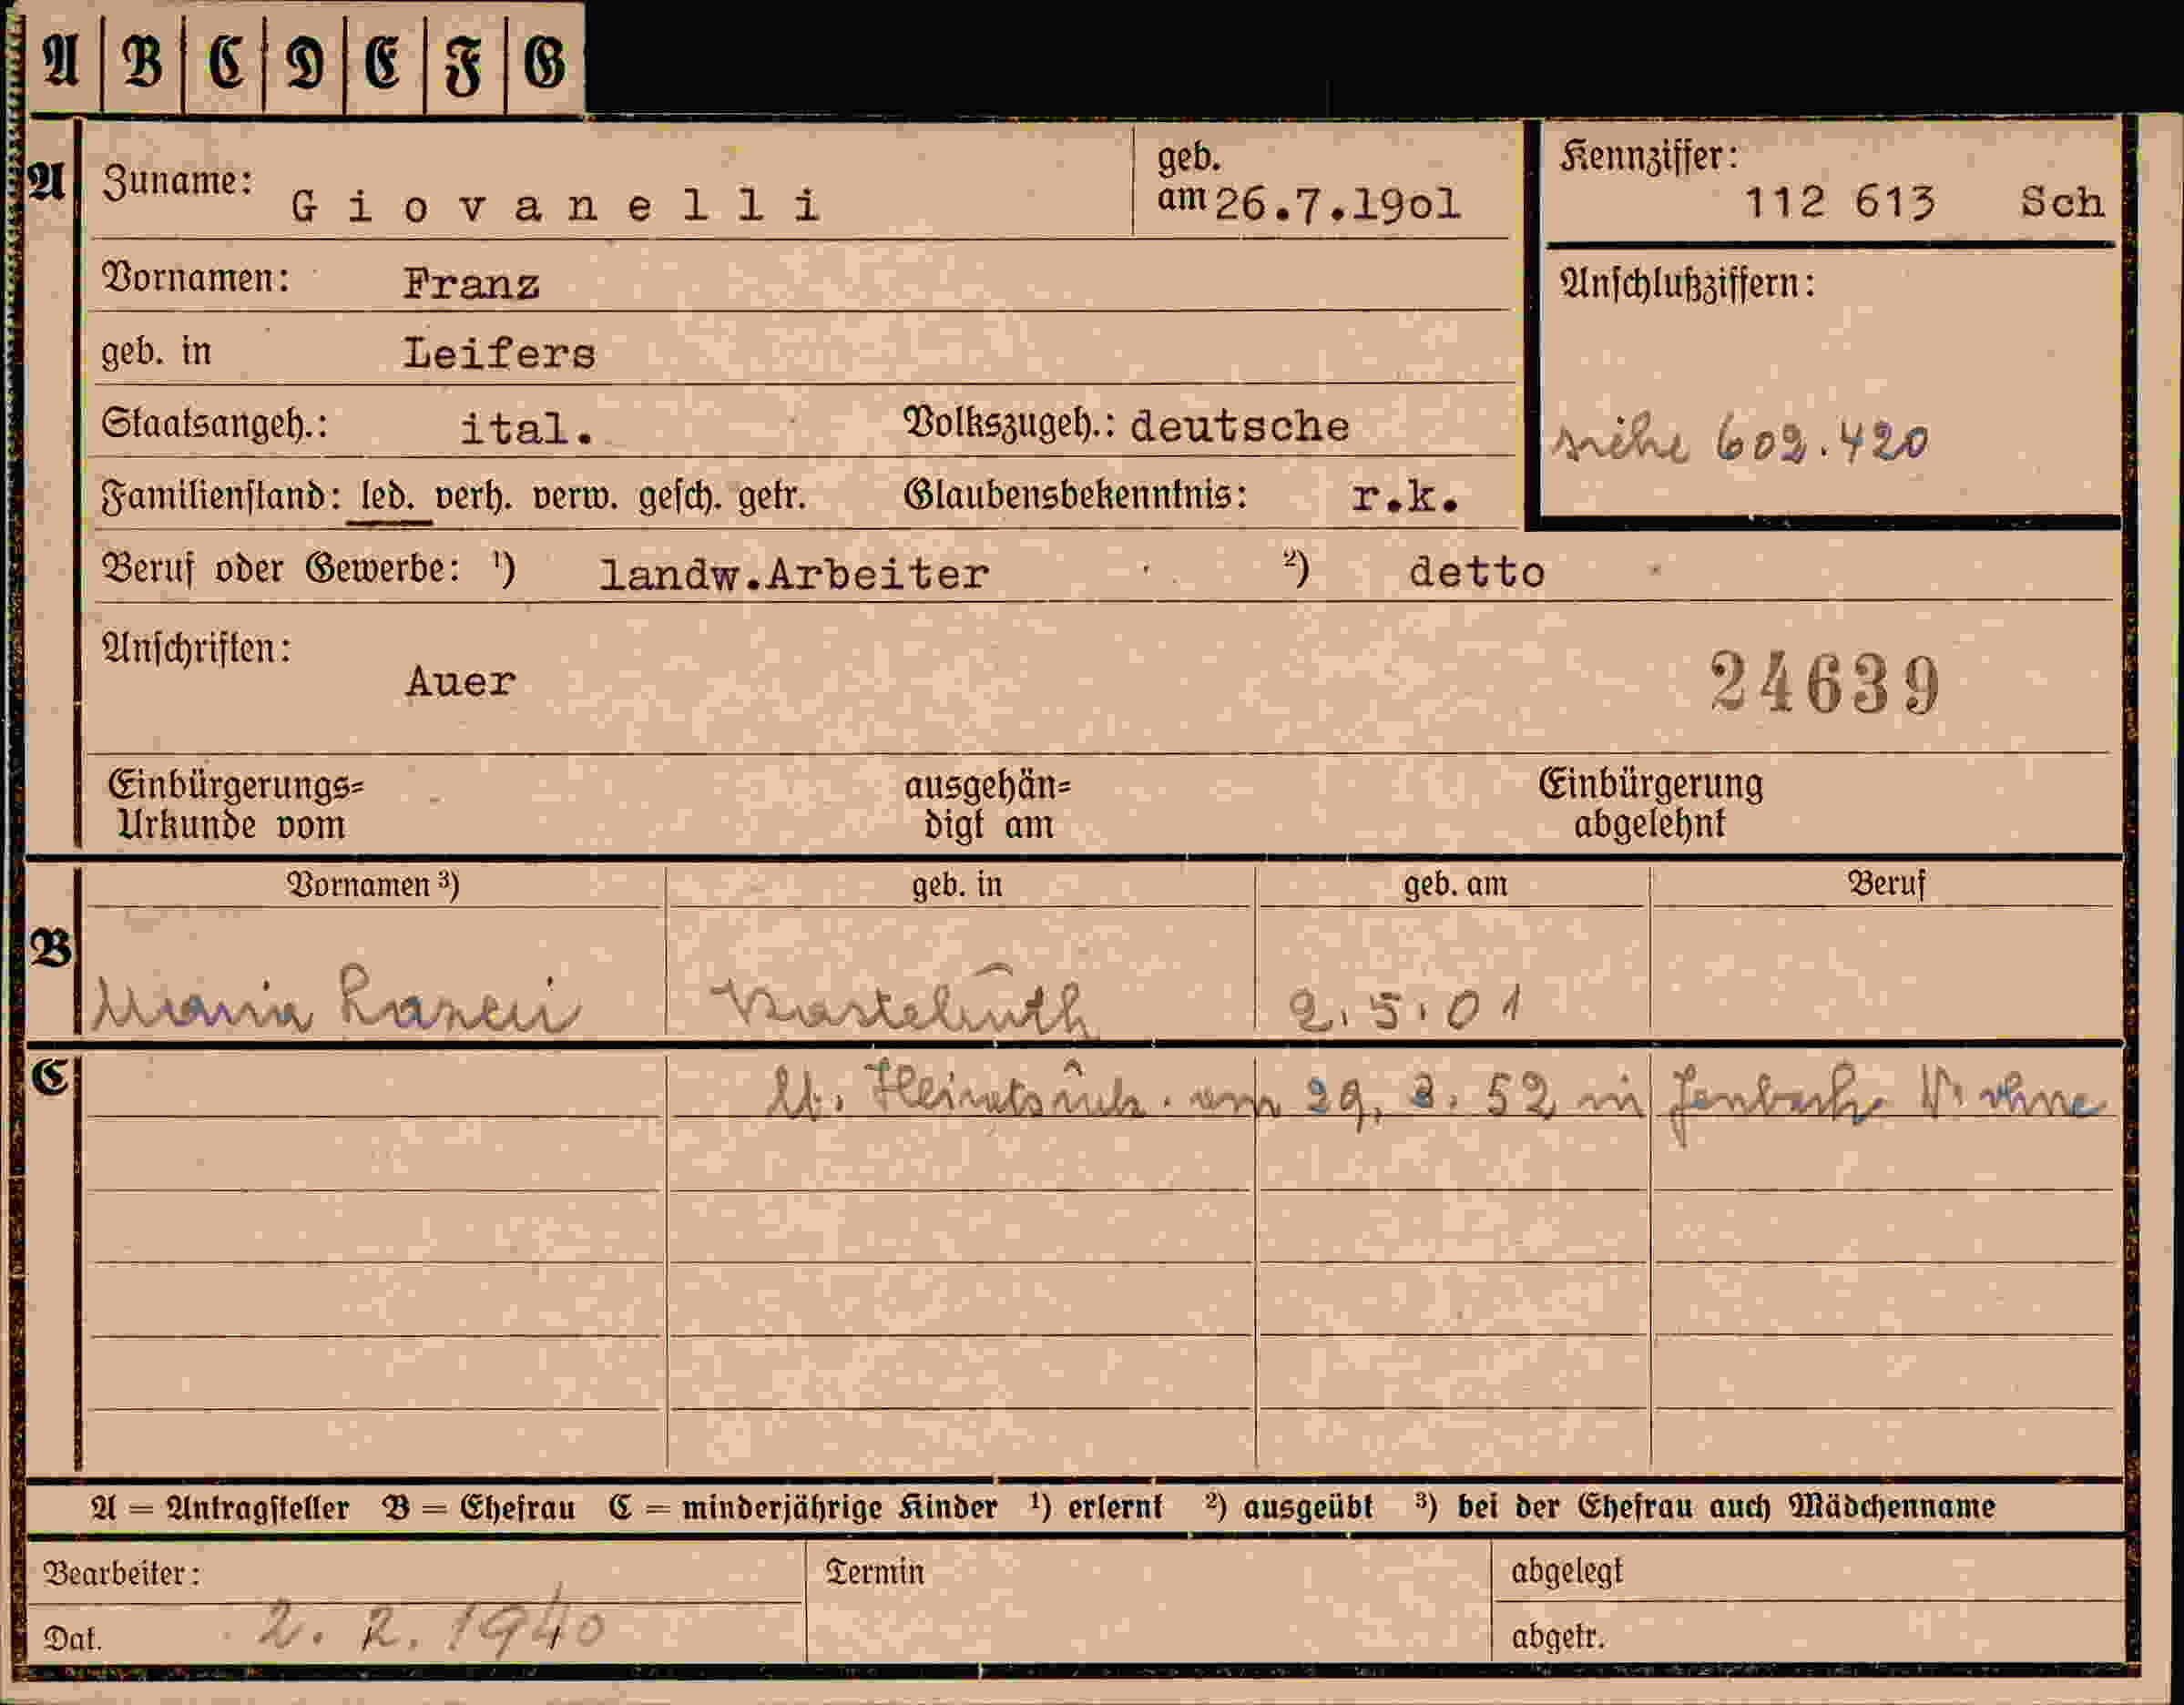 A B C D E F G
A Zuname: Giovanelli geb. am 26.7.19o1 Kennziffer: 112 613 Sch
Vornamen: Franz Anschlußziffern:
geb. in Leifers
Staatsangeh.: ital. Volkszugeh.: deutsche siehe 602.420
Familienstand: led. verh. verw. gesch. getr. Glaubensbekenntnis: r.k.
Beruf oder Gewerbe: ¹) landw.Arbeiter ²) detto
Anschriften:
Auer 24639
Einbürgerungs= ausgehän= Einbürgerung
Urkunde vom digt am abgelehnt
Vornamen ³) geb. in geb. am Beruf
B Maria Kastelruth 2.5.01
C lt. am 29. 3. 52 in Jenbach
A = Antragsteller B = Ehefrau C = minderjährige Kinder ¹) erlernt ²) ausgeübt ³) bei der Ehefrau auch Mädchenname
Bearbeiter: Termin abgelegt
Dat. 2. 2. 1940 abgetr.